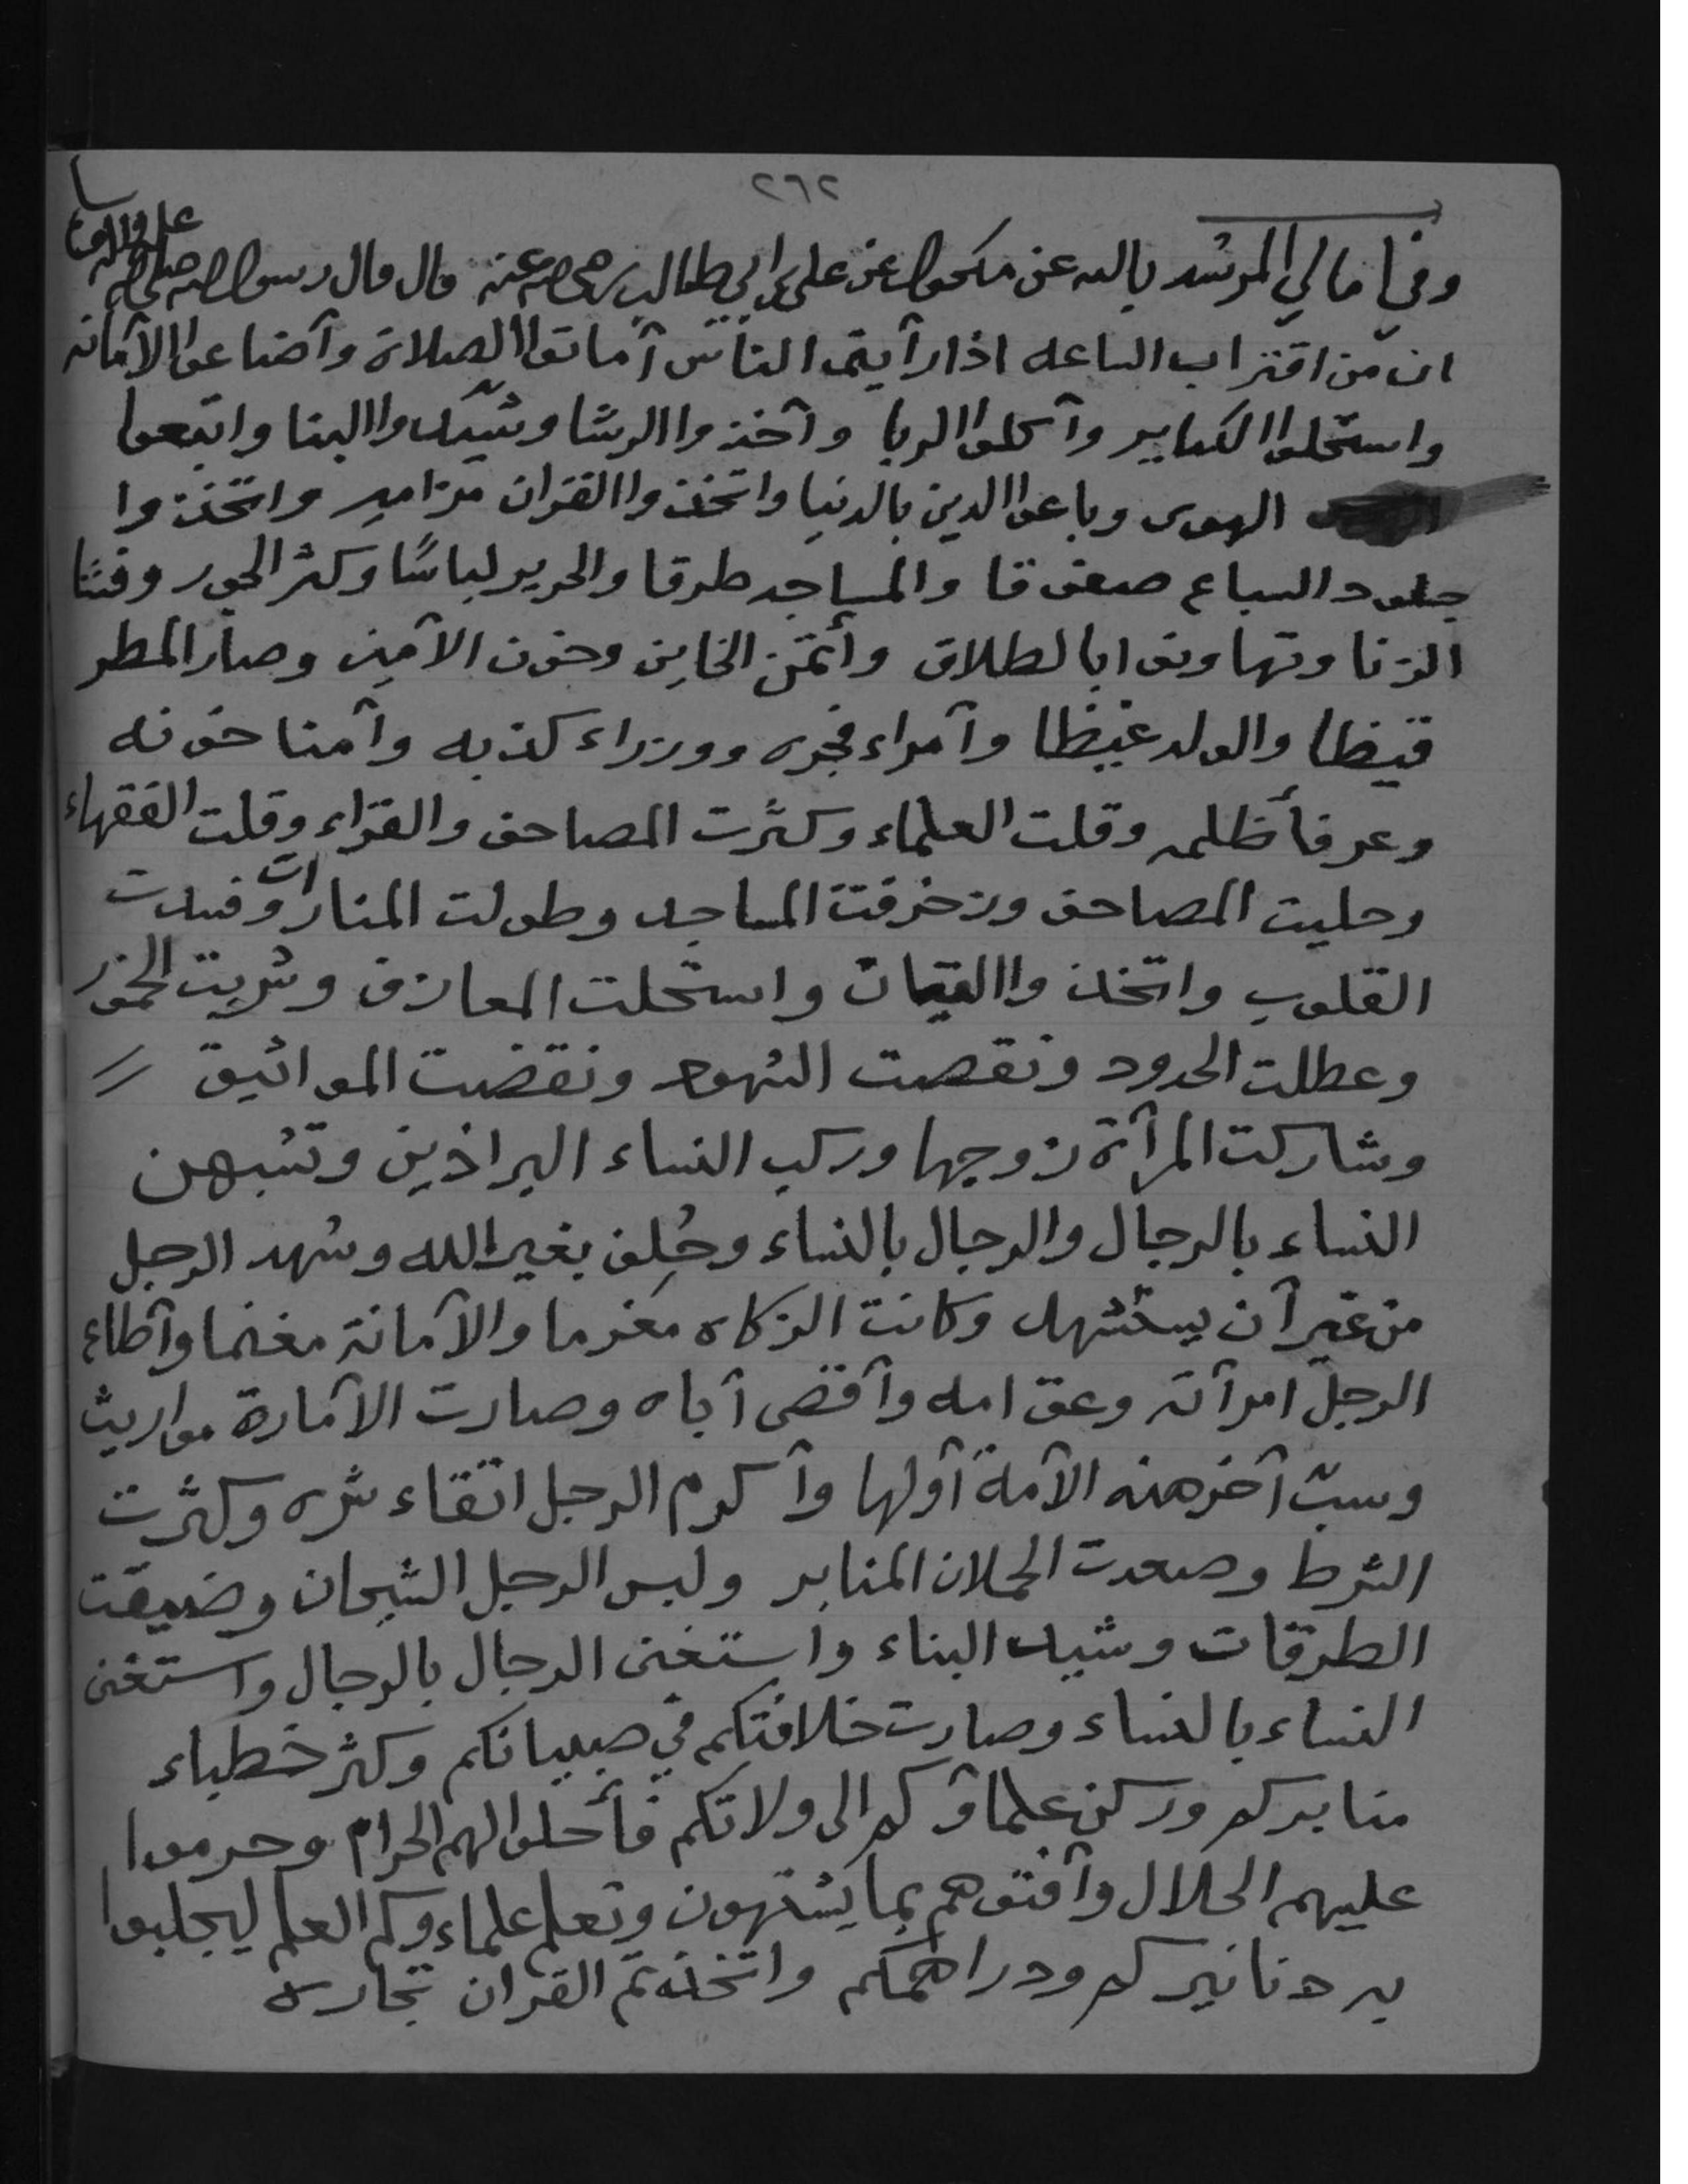 ٢٦٢
وفي امالي المرشد بالله عن مكحول عن علي بن ابي طالب رضي الله عنه قال قال رسول الله صلى الله عليه واله
ان من اقتراب الساعه اذا رأيتم الناس أماتوا الصلاة وأضاعوا الأمانه
واستحلوا الكباير وأكلوا الربا وأخذوا الرشا وشيّدوا البنا واتبعوا
الهوى وباعوا الدين بالدنيا واتخذوا القران مزامير واتخذوا
جلود السباع صفوقا والمساجد طرقا والحرير لباسًا وكثر الجور وفشا
الزنا وتهاونوا بالطلاق وأتمن الخاين وخون الأمين وصار المطر
قيظا والولد غيظا وأمراء فجره ووزراء كذبه وأمنا خونه
وعرفا ظلمه وقلت العلماء وكثرت المصاحف والقراء وقلت الفقهاء
وحليت المصاحف وزخرفت المساجد وطولت المنارات وفسدت
القلوب واتخذوا القيان واستحلت المعازف وشربت الخمور
وعطلت الحدود ونقصت الشهود ونقضت المواثيق
وشاركت المرأة زوجها وركب النساء البراذين وتشبهن
النساء بالرجال والرجال بالنساء وحُلِف بغير الله وشهد الرجل
من غير أن يستشهد وكانت الزكاه مغرما والأمانة مغنما وأطاع
الرجل امرأته وعق امه وأقصى أباه وصارت الأمارة مواريث
وسبّ آخر هذه الأمة أولها وأكرم الرجل اتقاء شره وكثرت
الشرط وصعدت الحملان المنابر ولبس الرجل التيجان وضيقت
الطرقات وشيد البناء واستغنى الرجال بالرجال واستغنى
النساء بالنساء وصارت خلافتكم في صبيانكم وكثر خطباء
منابركم وركن علماؤكم الى ولاتكم فأحلوا لهم الحرام وحرموا
عليهم الحلال وأفتوهم بما يشتهون وتعلم علماءوكم العلم ليجلبوا
به دنانيركم ودراهمكم واتخذتم القران تجارة